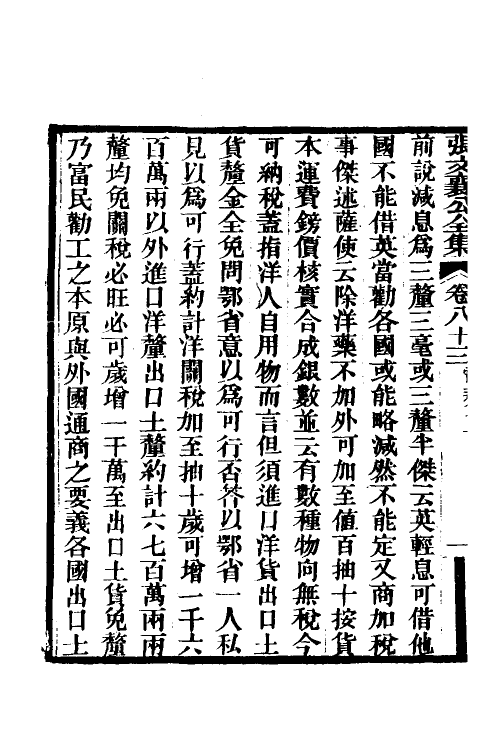 張文襄公全集 卷八十三
前說減息爲三釐三毫或三釐半傑云英輕息可借他
國不能借英當勸各國或能略減然不能定又商加稅
事傑述薩使云除洋藥不加外可加至値百抽十按貨
本運費鎊價核實合成銀數並云有數種物向無稅今
可納稅蓋指洋人自用物而言但須進口洋貨出口土
貨釐金全免問鄂省意以爲可行否答以鄂省一人私
見以爲可行蓋約計洋關稅加至抽十歲可增一千六
百萬兩以外進口洋釐出口土釐約計六七百萬兩兩
釐均免關稅必旺必可歲增一千萬至出口土貨免釐
乃富民勸工之本原與外國通商之要義各國出口土